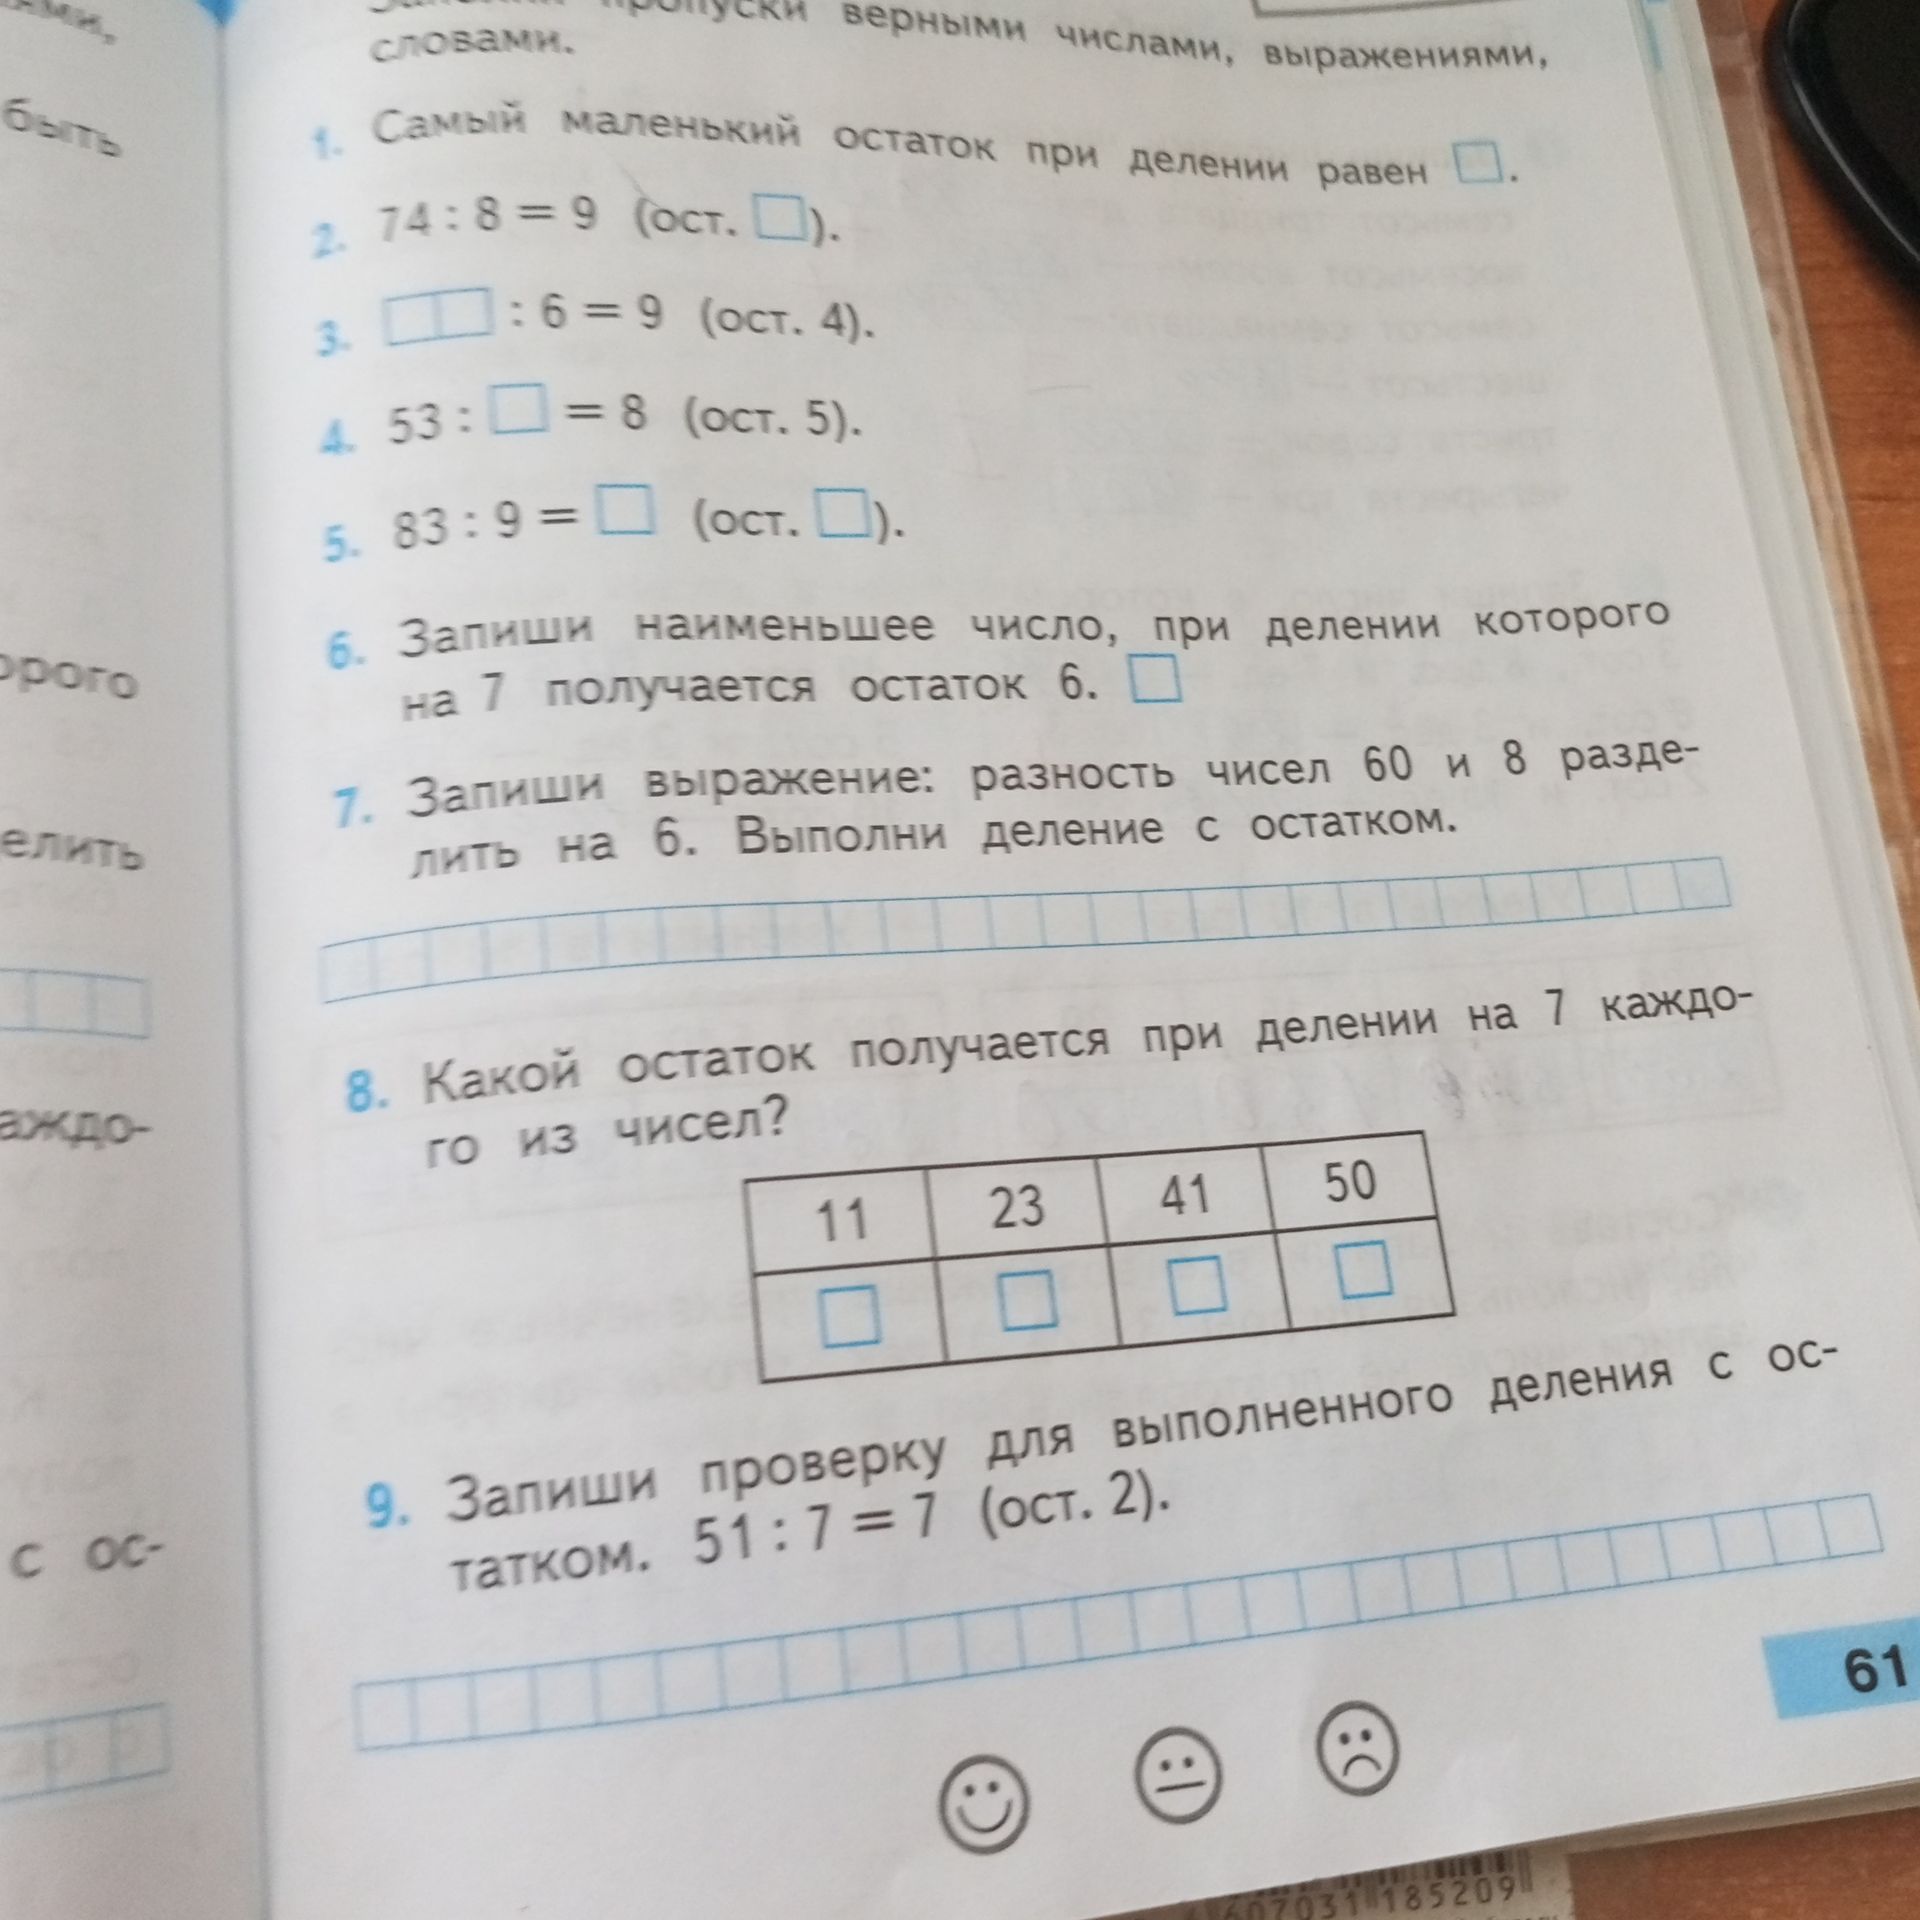 пропуски верными числами, выражениями,
словами.
1. Самый маленький остаток при делении равен □.
2. 74 : 8 = 9 (ост. □).
3. □□ : 6 = 9 (ост. 4).
4. 53 : □ = 8 (ост. 5).
5. 83 : 9 = □ (ост. □).
6. Запиши наименьшее число, при делении которого
на 7 получается остаток 6. □
7. Запиши выражение: разность чисел 60 и 8 разде-
лить на 6. Выполни деление с остатком.
8. Какой остаток получается при делении на 7 каждо-
го из чисел?
11 23 41 50
9. Запиши проверку для выполненного деления с ос-
татком. 51 : 7 = 7 (ост. 2).
61
быть
орого
елить
аждо-
с ос-
607031 185209